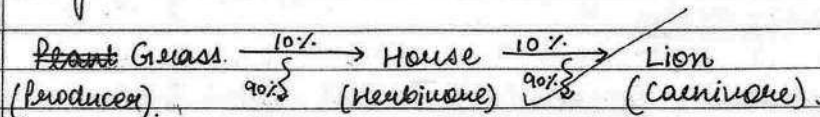 Plant Grass. 10%. → Horse 10%. → Lion
(Producer). 90% (Herbivore) 90% (Carnivore).